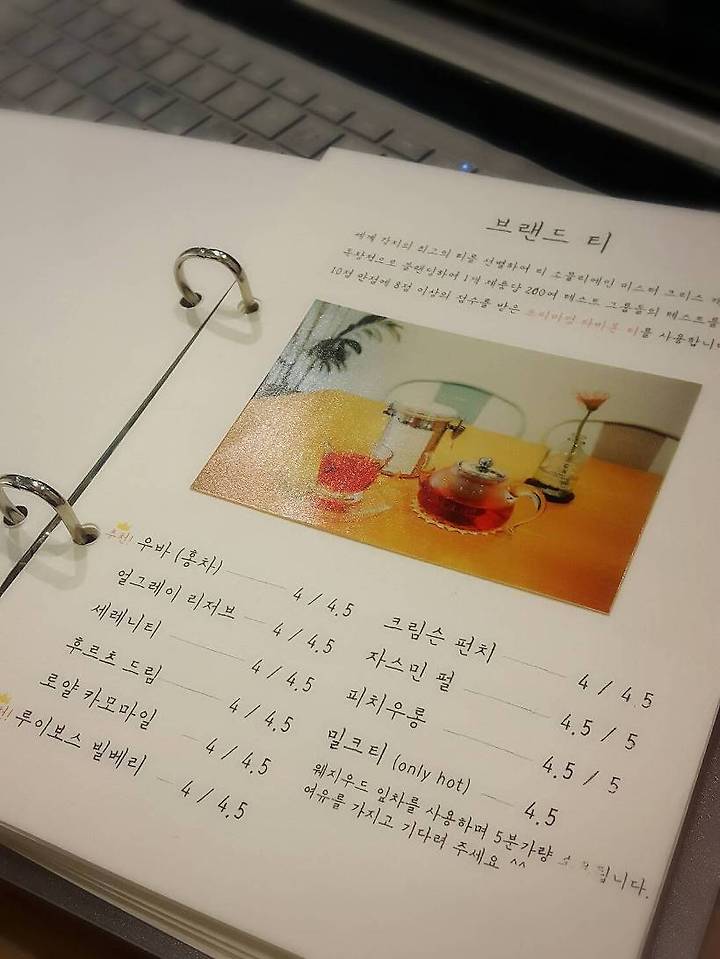 브랜드 티
세계 각지의 최고의 티를 선별하여 티 소믈리에인 미스터 크리스
독창적으로 블랜딩하여 1개 제품당 200여 테스트 그룹들의 테스트를
10점 만점에 8점 이상의 점수를 받은 프리미엄 티를 사용합니다
추천! 우바 (홍차) 4 / 4.5
얼그레이 리저브 4 / 4.5
세레니티 4 / 4.5
후르츠 드림 4 / 4.5
로얄 카모마일 4 / 4.5
루이보스 빌베리 4 / 4.5
크림슨 펀치 4 / 4.5
자스민 펄 4.5 / 5
피치우롱 4.5 / 5
밀크티 (only hot) 4.5
웨지우드 잎차를 사용하며 5분가량 소요됩니다.
여유를 가지고 기다려 주세요 ^^